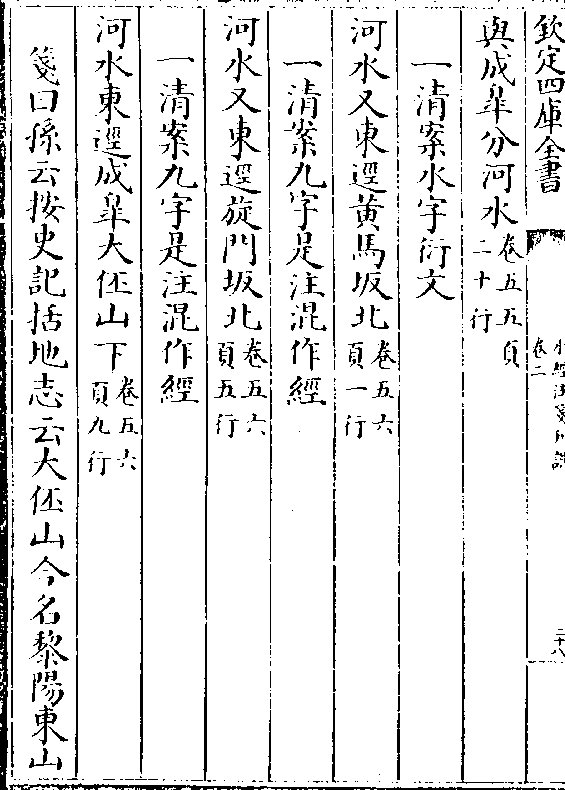 欽定四庫全書
卷二
二十八
與成臯分河水卷五五頁二十行
一清案水字衍文
河水又東逕黄馬坂北卷五六頁一行
一清案九字是注混作經
河水又東逕旋門坂北卷五六頁五行
一清案九字是注混作經
河水東逕成臯大伾山下卷五六頁九行
箋曰孫云按史記括地志云大伾山今名黎陽東山